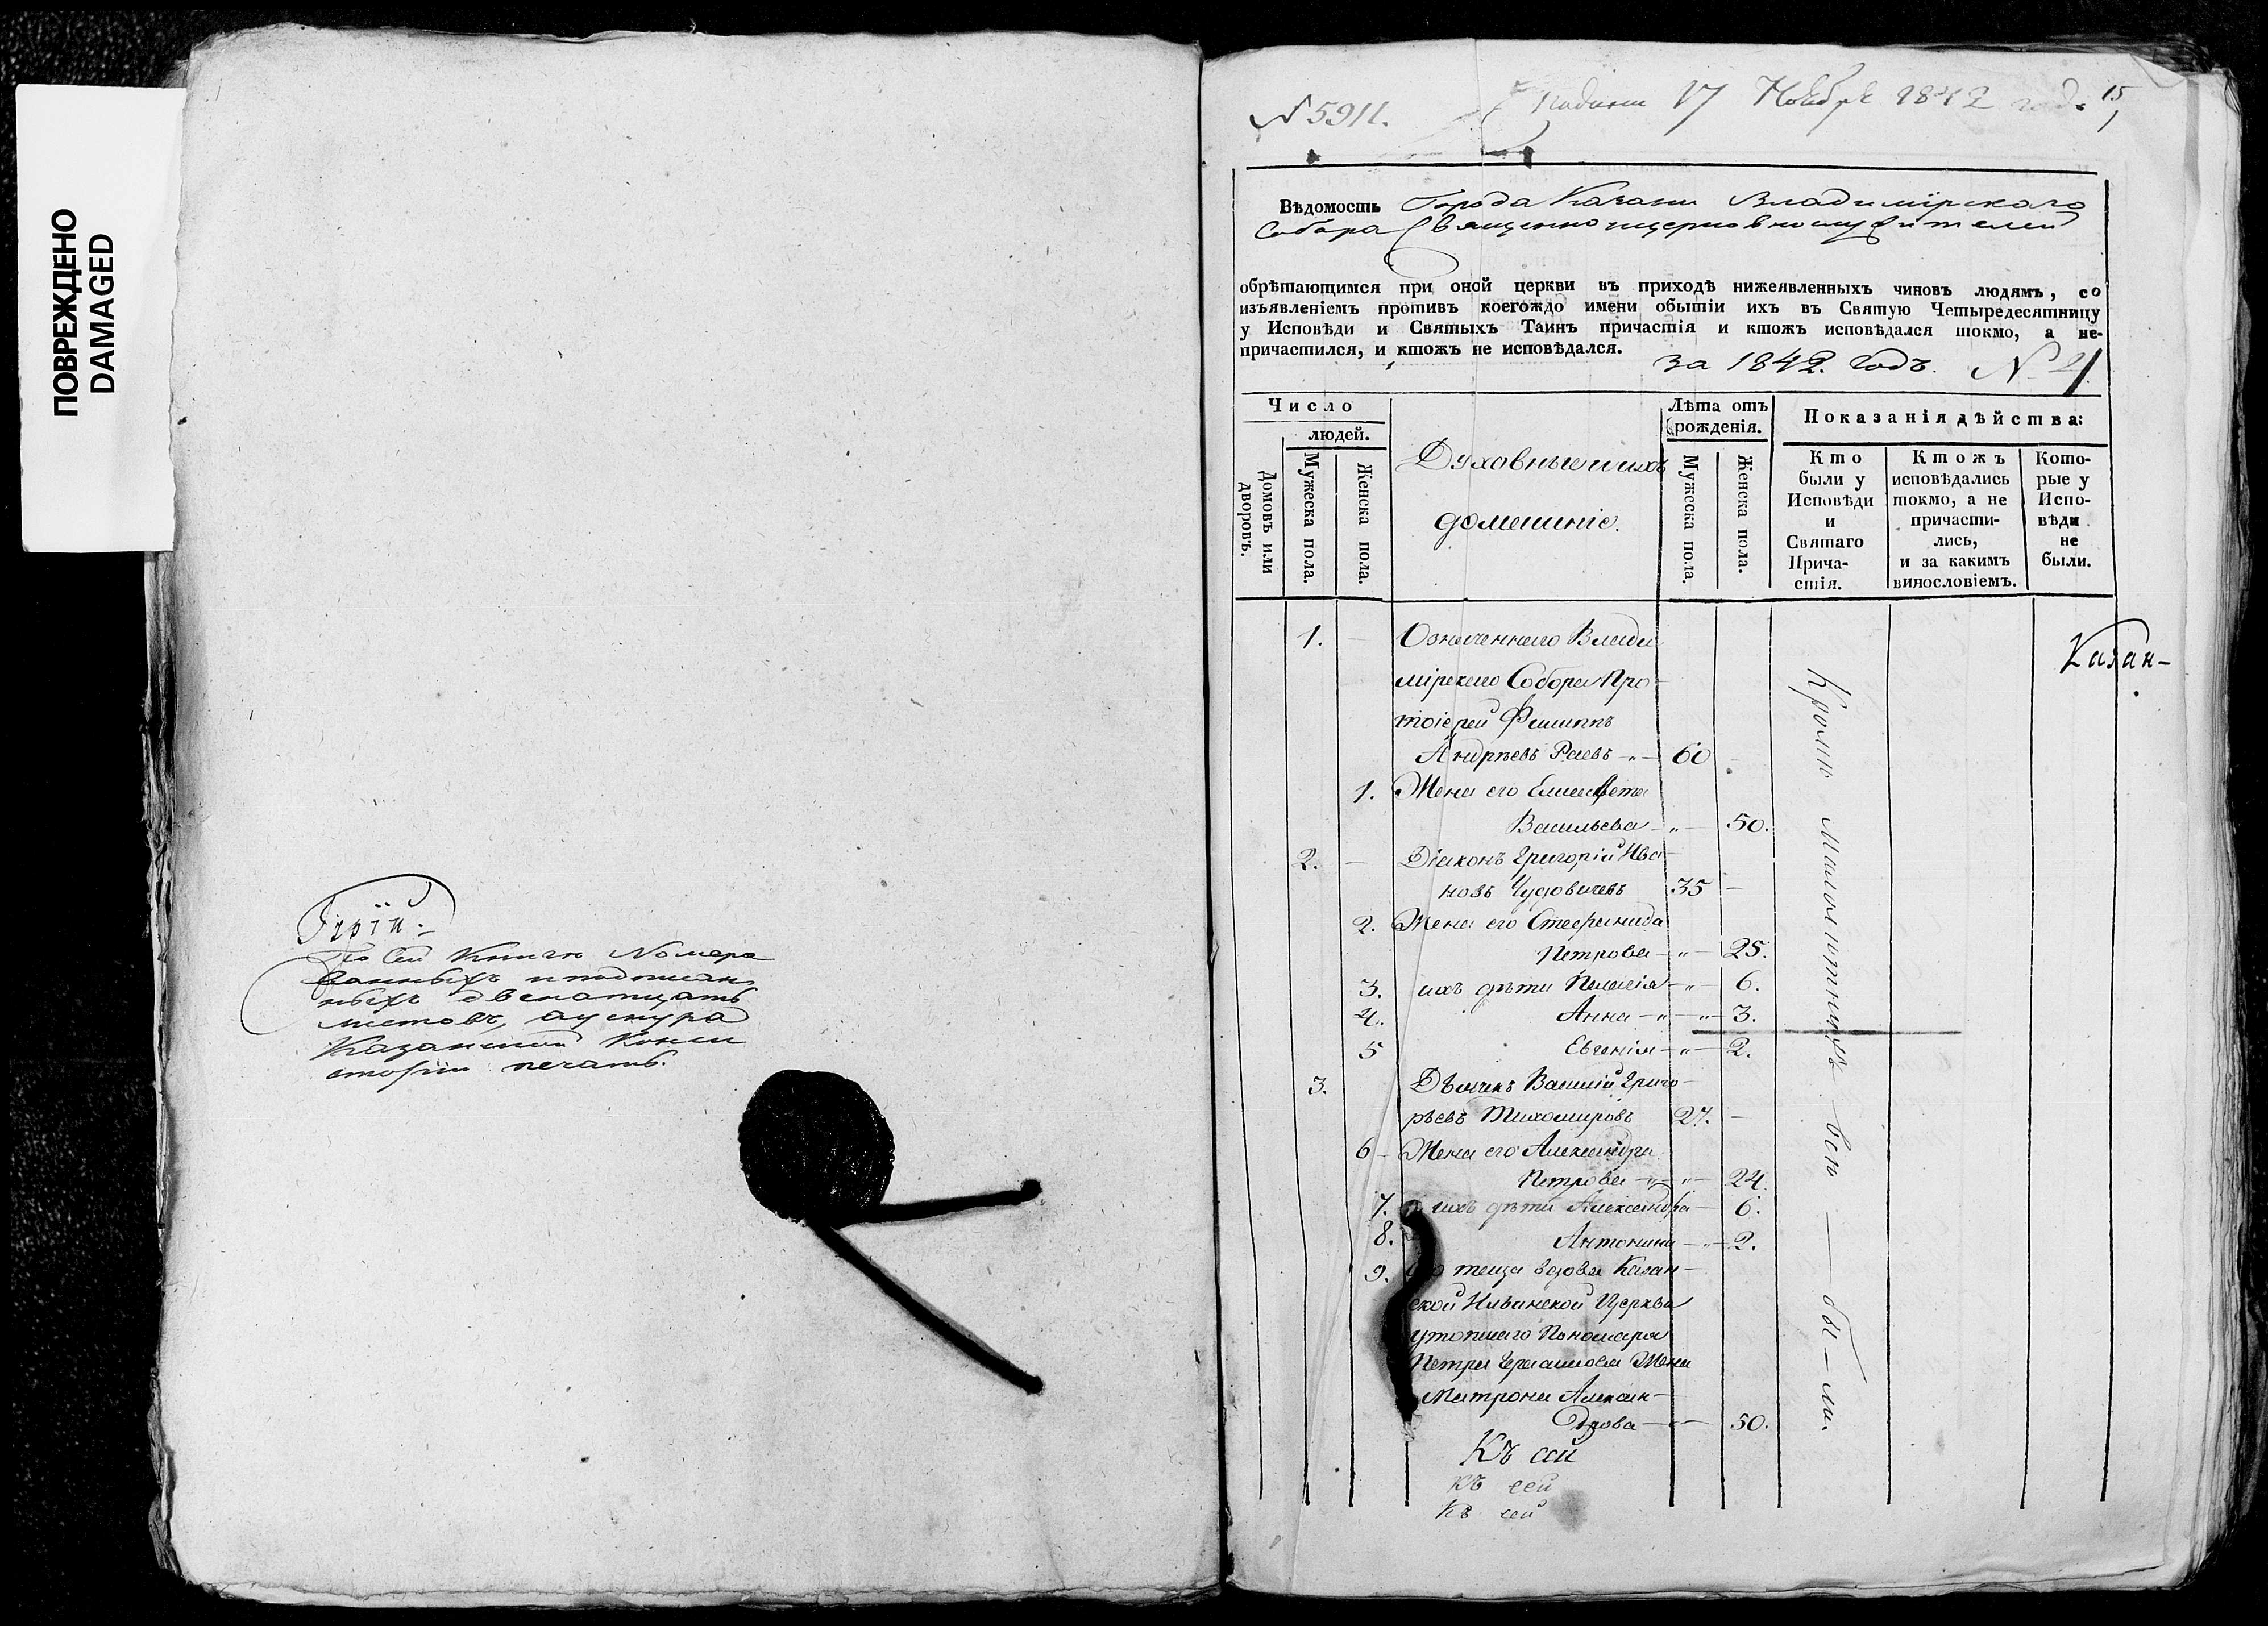 ПОВРЕЖДЕНО
DAMAGED
По сей книге Номеро
ванныхъ и подписан
ныхъ двенатцать
листовъ, а у шнура
Казанской Конси
сторіи печать.
№ 5911.
17 Ноября 1842 года
15
Вѣдомость Города Казани Владимірскаго
Собора Священноицерковнослужителей
обрѣтающимся при оной церкви въ приходѣ нижеявленныхъ чиновъ людямъ, со
изъявленіемъ противъ коегождо имени обытіи ихъ въ Святую Четыредесятницу
у Исповѣди и Святыхъ Таинъ причастія и ктожъ исповѣдался токмо, а не-
причастился, и ктожъ не исповѣдался.
за 1842. годъ. №
Число
людей.
Домовъ или дворовъ.
Мужеска пола.
Женска пола.
Духовные и ихъ
домашніе.
Лѣта отъ
рожденія.
Мужеска пола.
Женска пола.
Показанія дѣйства:
Кто
были у
Исповѣди
и
Святаго
Прича-
стія.
Ктожъ
исповѣдались
токмо, а не
причасти-
лись,
и за какимъ
винословіемъ.
Кото-
рые у
Испо-
вѣди
не
были.
1. — Означеннаго Влади
мірскаго Собора Про
тоіерей Филиппъ
Андрѣевъ Раевъ — 60 —
1. Жена его Елисавета
Васильева — 50.
2. — Діаконъ Григорій Ива
новъ Чудовичевъ 35 —
2. Жена его Стефанида
Петрова — 25.
3. ихъ дѣти Пелагія — 6.
4. Анна — 3.
5 Евгенія — 2.
3. Дьячекъ Василій Григо
рьевъ Тихомировъ 27. —
6 — Жена его Александра
Петрова — 24.
7. ихъ дѣти Александра — 6.
8. Антонина — 2.
9. его теща вдова Казан
ской Ильинской Церкви
утопшаго Пономаря
Петра Жена
Матрона Алексан
дрова — 50.
Къ сей
къ сей
Къ сей
Кромѣ Малолѣтныхъ всѣ — бы — ли.
Казан-